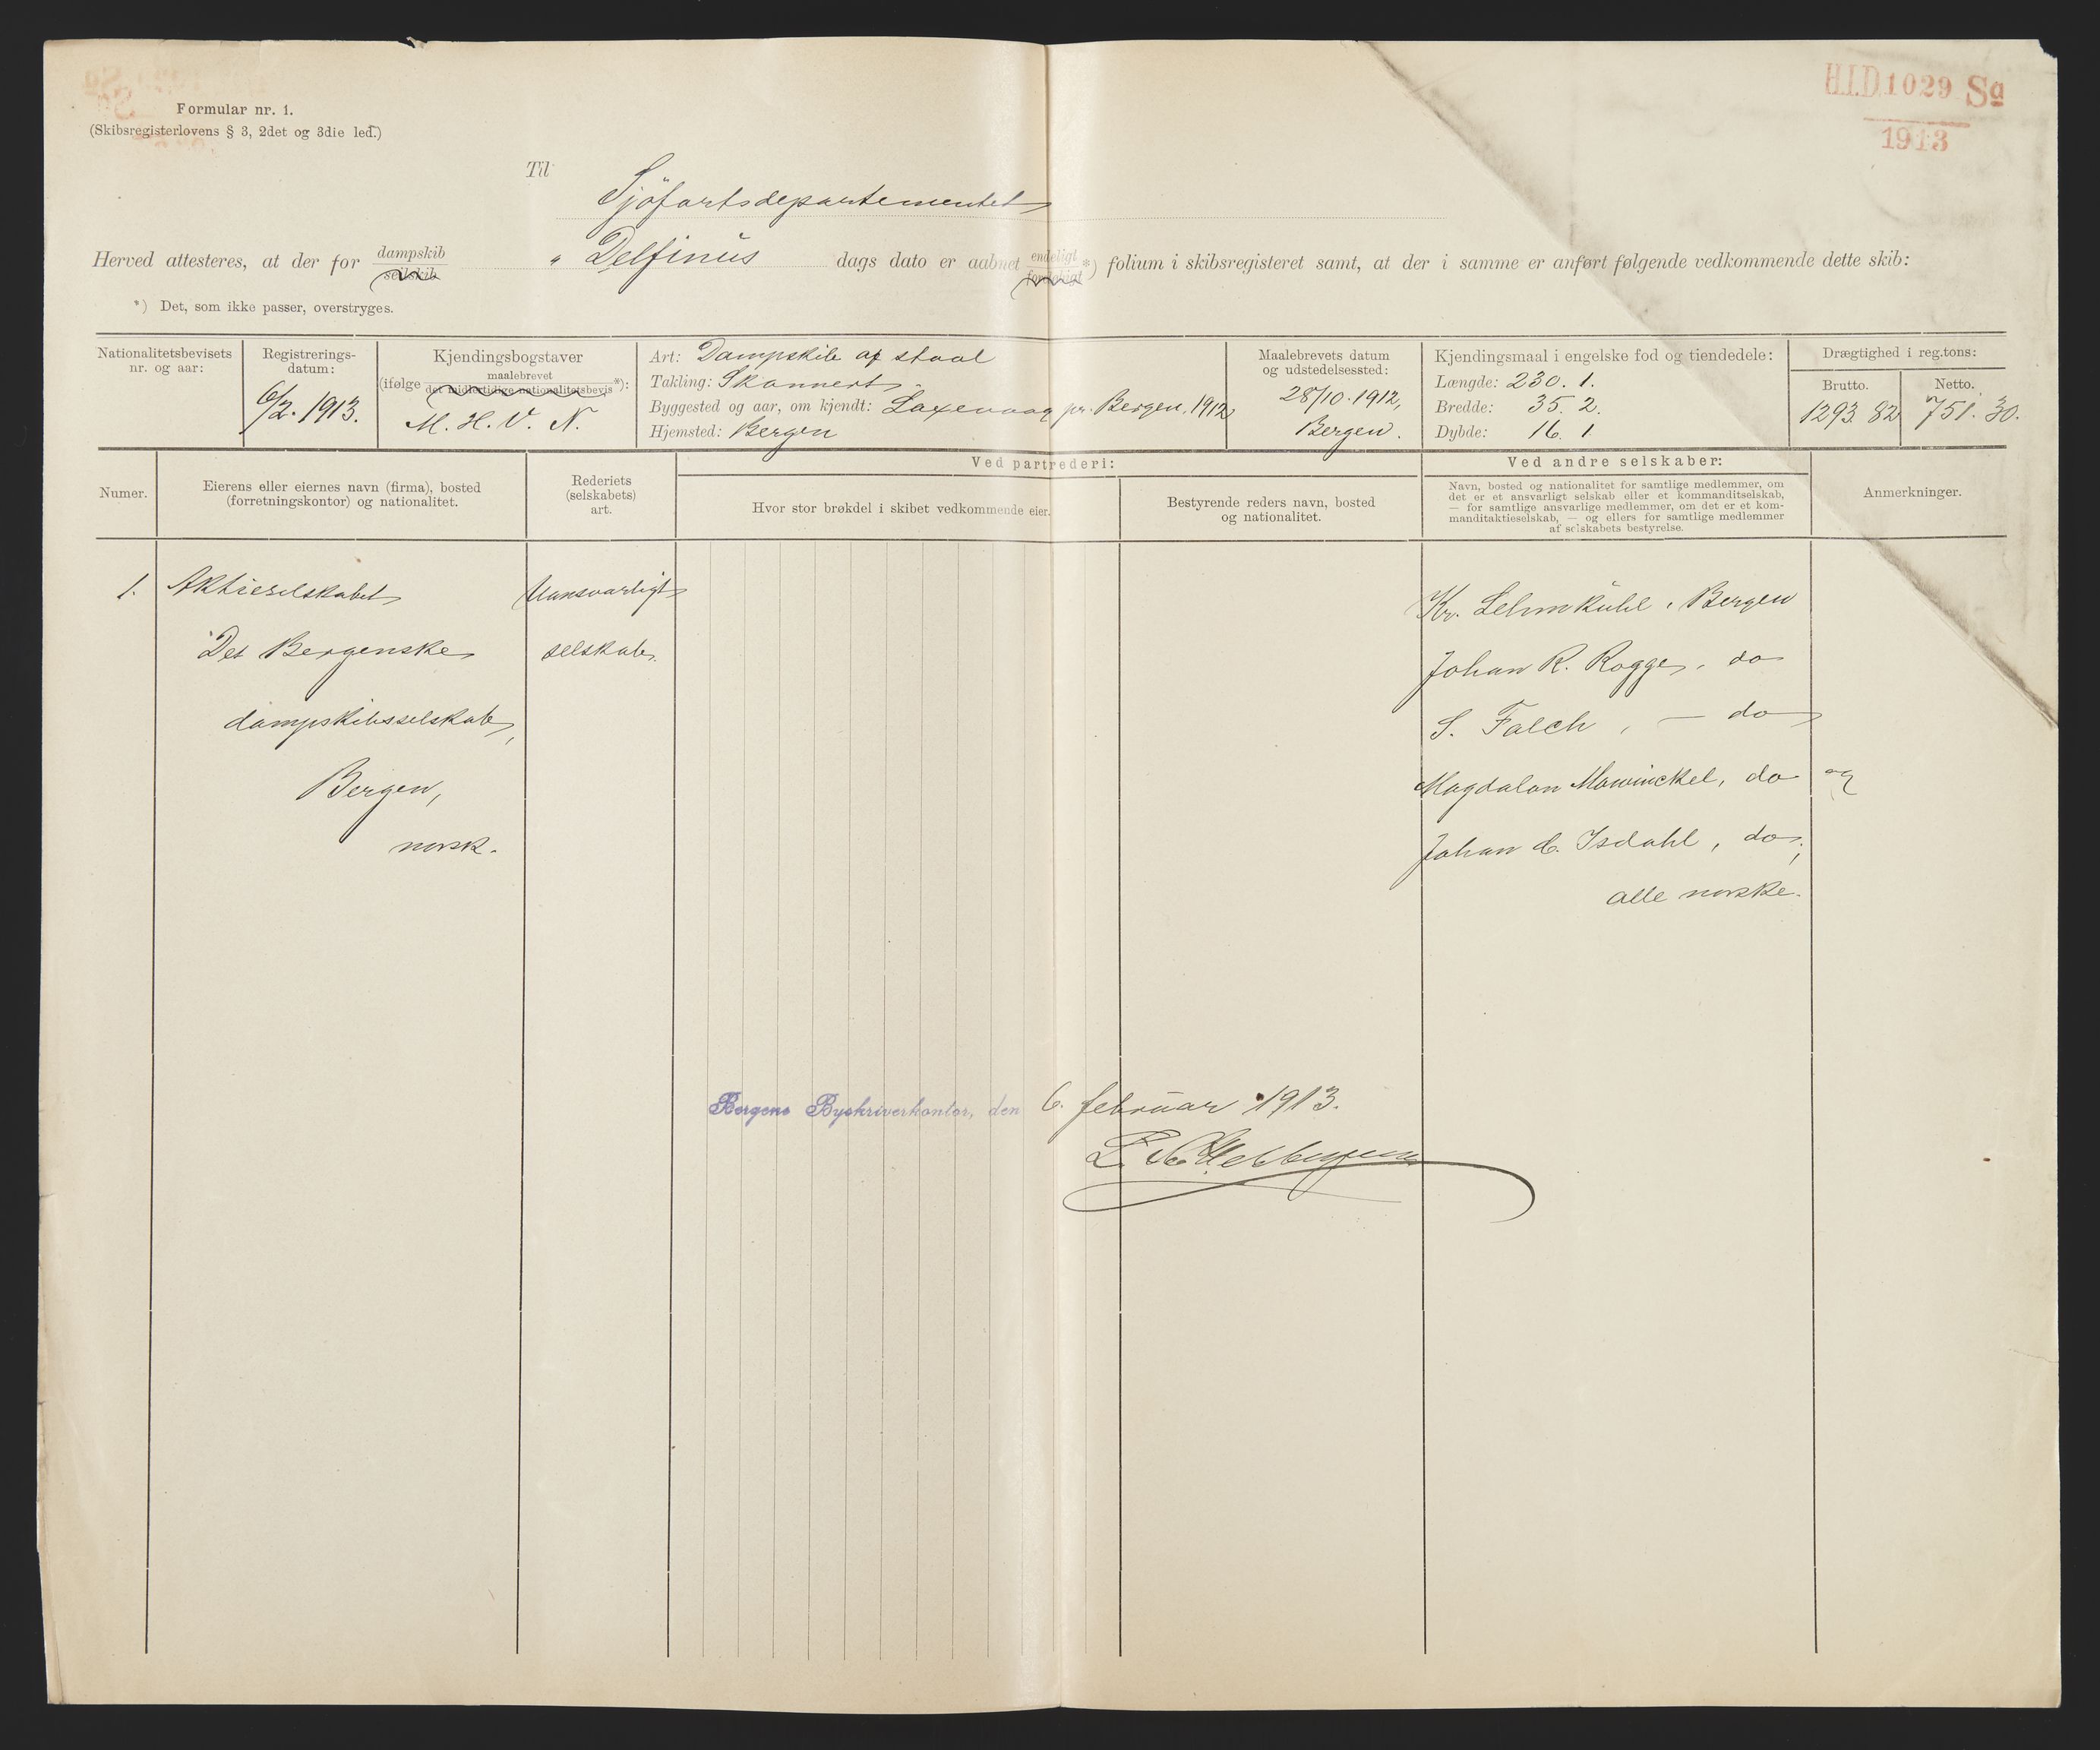 H.I.D 1029 Sa
1913
Formular nr. 1.
(Skibsregisterlovens § 3, 2det og 3die led.)
Til
Sjöfartsdepartementet
Herved attesteres, at der for dampskib
seilskib
"Delfinus dags dato er aabnet endeligt
foreløbigt *) folium i skibsregisteret samt, at der i samme er anført følgende vedkommende dette skib:
*) Det, som ikke passer, overstryges.
Nationalitetsbevisets
nr. og aar:
Registrerings-
datum:
6/2. 1913.
Kjendingsbogstaver
(ifølge maalebrevet
det midlertidige nationalitetsbevis *):
M. H. V. N.
Art: Dampskib af staal
Takling: Skonnert
Byggested og aar, om kjendt: Laxevaag pr. Bergen, 1912
Hjemsted: Bergen
Maalebrevets datum
og udstedelsessted:
28/10. 1912,
Bergen.
Kjendingsmaal i engelske fod og tiendedele:
Længde: 230. 1.
Bredde: 35. 2.
Dybde: 16. 1
Drægtighed i reg.tons:
Brutto.
1293 82
Netto.
751. 30.
Numer.
Eierens eller eiernes navn (firma), bosted
(forretningskontor) og nationalitet.
Rederiets
(selskabets)
art.
Ved partrederi:
Hvor stor brøkdel i skibet vedkommende eier.
Bestyrende reders navn, bosted
og nationalitet.
Ved andre selskaber:
Navn, bosted og nationalitet for samtlige medlemmer, om
det er et ansvarligt selskab eller et kommanditselskab,
— for samtlige ansvarlige medlemmer, om det er et kom-
manditaktieselskab, — og ellers for samtlige medlemmer
af selskabets bestyrelse.
Anmerkninger.
1. Aktieselskabet
Det Bergenske
dampskibsselskab,
Bergen,
norsk.
Uansvarligt
selskab.
Kr. Lehmkühl, Bergen
Johan R. Rogge, do
S. Falch, — do
Magdalon Mowinckel, do og
Johan C. Isdahl, do,
alle norske.
Bergens Byskriverkontor, den 6. februar 1913.